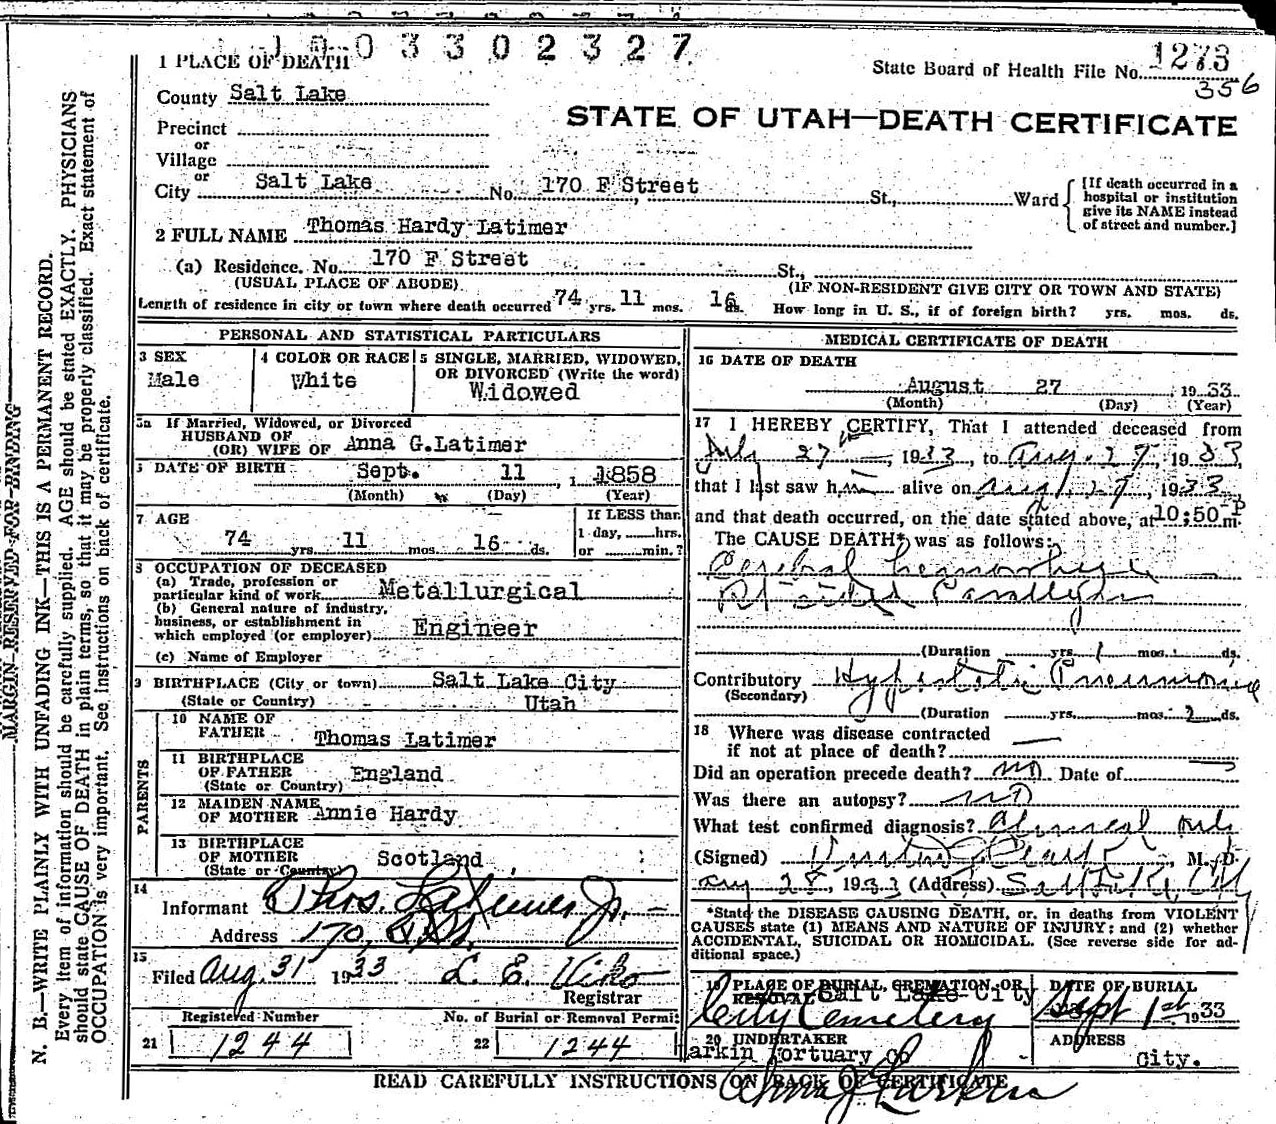 1 0 0 3 3 0 2 3 2 7
1273
1 PLACE OF DEATH
State Board of Health File No.
356
County Salt Lake
STATE OF UTAH—DEATH CERTIFICATE
Precinct
or
Village
or
City Salt Lake No. 170 F Street St., Ward
[If death occurred in a
hospital or institution
give its NAME instead
of street and number.]
2 FULL NAME Thomas Hardy Latimer
(a) Residence. No. 170 F Street St.,
(USUAL PLACE OF ABODE) (IF NON-RESIDENT GIVE CITY OR TOWN AND STATE)
Length of residence in city or town where death occurred 74 yrs. 11 mos. 16 ds. How long in U. S., if of foreign birth? yrs. mos. ds.
PERSONAL AND STATISTICAL PARTICULARS
3 SEX
Male
4 COLOR OR RACE
White
5 SINGLE, MARRIED, WIDOWED,
OR DIVORCED (Write the word)
Widowed
5a If Married, Widowed, or Divorced
HUSBAND OF
(OR) WIFE OF Anna G.Latimer
6 DATE OF BIRTH Sept. 11, 1858
(Month) (Day) (Year)
7 AGE
74 yrs. 11 mos. 16 ds.
If LESS than
1 day, hrs.
or min.?
8 OCCUPATION OF DECEASED
(a) Trade, profession or
particular kind of work Metallurgical
(b) General nature of industry,
business, or establishment in
which employed (or employer) Engineer
(c) Name of Employer
9 BIRTHPLACE (City or town) Salt Lake City
(State or Country) Utah
PARENTS
10 NAME OF
FATHER Thomas Latimer
11 BIRTHPLACE
OF FATHER England
(State or Country)
12 MAIDEN NAME
OF MOTHER Annie Hardy
13 BIRTHPLACE
OF MOTHER Scotland
(State or Country)
14
Informant Thos. Latimer Jr.
Address 170, F St.
15
Filed Aug. 31 1933 L. E. Viko
Registrar
Registered Number No. of Burial or Removal Permit
21 1244 22 1244
MEDICAL CERTIFICATE OF DEATH
16 DATE OF DEATH
August 27, 1933
(Month) (Day) (Year)
17 I HEREBY CERTIFY, That I attended deceased from
July 27, 1933, to Aug. 27, 1933,
that I last saw him alive on Aug. 27, 1933,
and that death occurred, on the date stated above, at 10:50 P m.
The CAUSE DEATH* was as follows:
Cerebral hemorrhage
Rt sided Paralysis
(Duration yrs. 1 mos. ds.
Contributory Hypostatic Pneumonia
(Secondary)
(Duration yrs. mos. 2 ds.
18 Where was disease contracted
if not at place of death?
Did an operation precede death? no Date of
Was there an autopsy? no
What test confirmed diagnosis? Clinical
(Signed) M. D.
Aug 28, 1933 (Address) Salt Lake City
*State the DISEASE CAUSING DEATH, or, in deaths from VIOLENT
CAUSES state (1) MEANS AND NATURE OF INJURY; and (2) whether
ACCIDENTAL, SUICIDAL OR HOMICIDAL. (See reverse side for ad-
ditional space.)
19 PLACE OF BURIAL, CREMATION, OR
REMOVAL Salt Lake City
City Cemetery
DATE OF BURIAL
Sept 1st 1933
20 UNDERTAKER
Larkin Mortuary Co
Alma J Larkin
ADDRESS
City.
READ CAREFULLY INSTRUCTIONS ON BACK OF CERTIFICATE
MARGIN RESERVED FOR BINDING
N. B.—WRITE PLAINLY WITH UNFADING INK—THIS IS A PERMANENT RECORD.
Every item of information should be carefully supplied. AGE should be stated EXACTLY. PHYSICIANS
should state CAUSE OF DEATH in plain terms, so that it may be properly classified. Exact statement of
OCCUPATION is very important. See instructions on back of certificate.